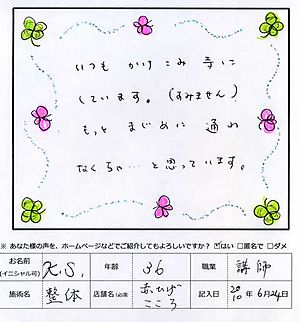 いつも かけこみ寺に
しています。(すみません)
もっと まじめに 通わ
なくちゃ…と思っています。
※ あなた様の声を、ホームページなどでご紹介してもよろしいですか? ☑はい □匿名で □ダメ
お名前 (イニシャル可) K.S. 年齢 36 職業 講師
施術名 整体 店舗名(必須) 赤ひげ こころ 記入日 2010年 6月24日